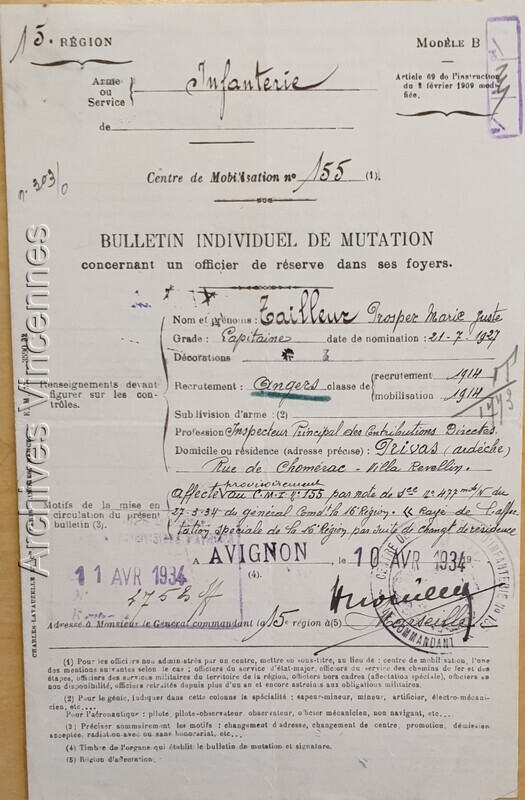 15e RÉGION
MODÈLE B
Arme ou Service { Infanterie
Article 69 de l'instruction du 2 février 1909 modifiée.
de
n. 303/0
Centre de Mobilisation no 155 (1).
BULLETIN INDIVIDUEL DE MUTATION
concernant un officier de réserve dans ses foyers.
Renseignements devant figurer sur les contrôles.
Nom et prénoms : Tailleur Prosper Marie Juste
Grade : Capitaine date de nomination : 21-7-1927
Décorations
Recrutement : Angers classe de { recrutement 1914
mobilisation 1914
Subdivision d'arme : (2)
Profession Inspecteur Principal des Contributions Directes
Domicile ou résidence (adresse précise) : Privas (ardèche)
Rue de Chomérac - Villa Revellin.
Motifs de la mise en circulation du présent bulletin (3).
provisoirement
affecté au C.M.I. no 155 par note de Sce no 477 /
27-3-34 du général Comdt la 16e Région. « Rayé de l'affectation spéciale de la 16e Région par suite de changt de résidence
A AVIGNON, le 10 AVR 1934
(4).
11 AVR 1934
2753
Adressé à Monsieur le Général commandant la 15e région à (5) Marseille
COMMANDANT
INFANTERIE No
(1) Pour les officiers non administrés par un centre, mettre en sous-titre, au lieu de : centre de mobilisation, l'une
des mentions suivantes selon le cas : officiers du service d'état-major, officiers du service des chemins de fer et des
étapes, officiers des services militaires du territoire de la région, officiers hors cadres (affectation spéciale), officiers en
non disponibilité, officiers retraités depuis plus d'un an et encore astreints aux obligations militaires.
(2) Pour le génie, indiquer dans cette colonne la spécialité : sapeur-mineur, mineur, artificier, électro-mécanicien, etc....
Pour l'aéronautique : pilote, pilote-observateur, observateur, officier mécanicien, non navigant, etc....
(3) Préciser sommairement les motifs : changement d'adresse, changement de centre, promotion, démission
acceptée, radiation avec ou sans honorariat, etc...
(4) Timbre de l'organe qui établit le bulletin de mutation et signature.
(5) Région d'affectation.
CHARLES-LAVAUZELLE
Archives Vincennes